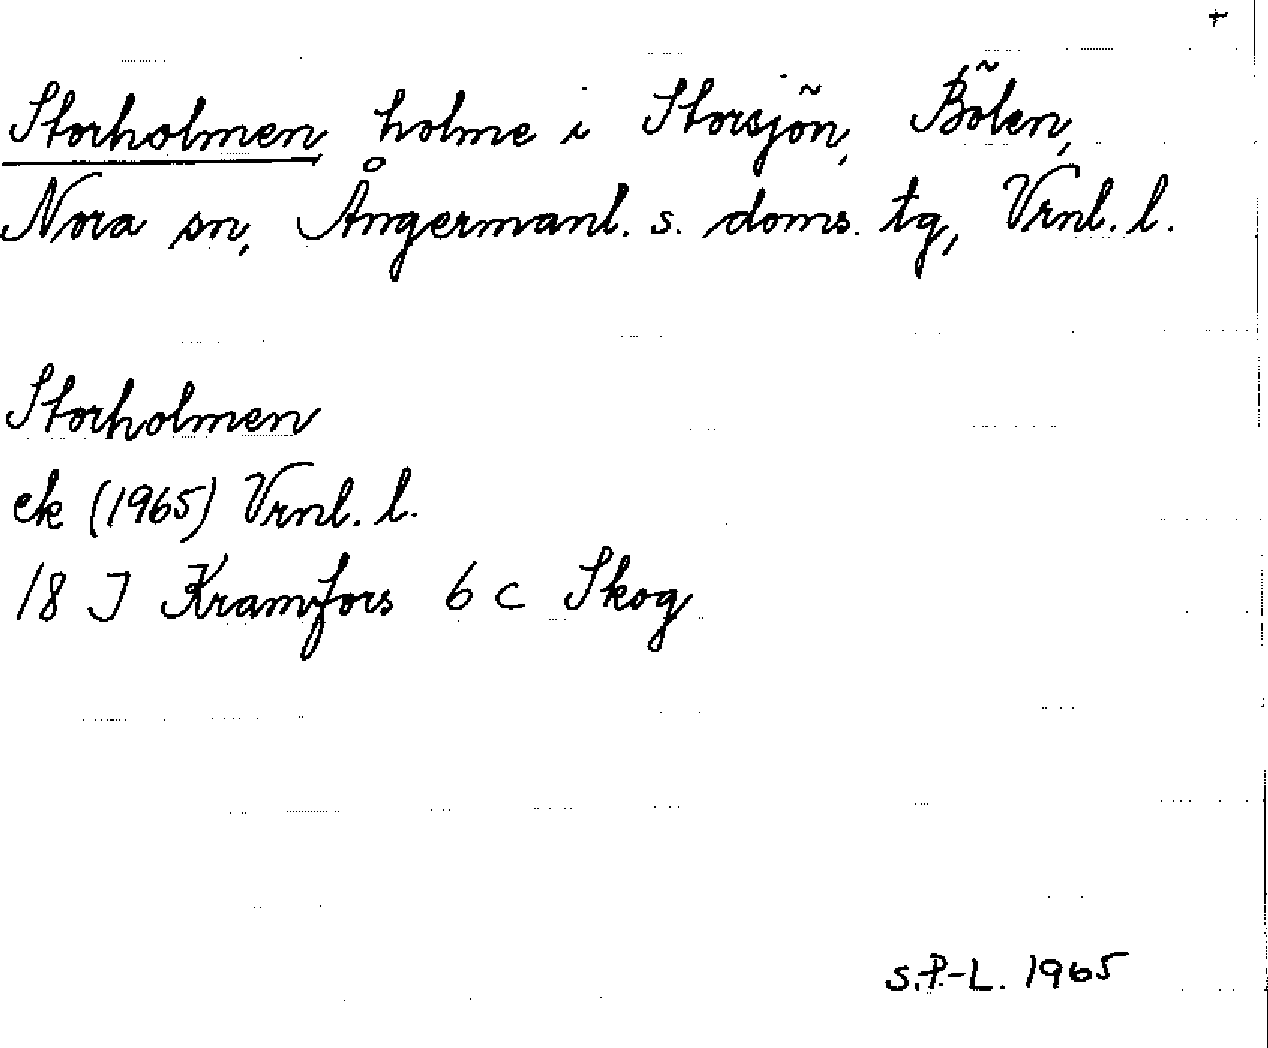 +
Storholmen holme i Storsjön, Bölen,
Nora sn, Ångermanl. s. doms. tg, Vrnl. l.
Storholmen
ek (1965) Vrnl. l.
18 J Kramfors 6 c Skog
S.P-L. 1965